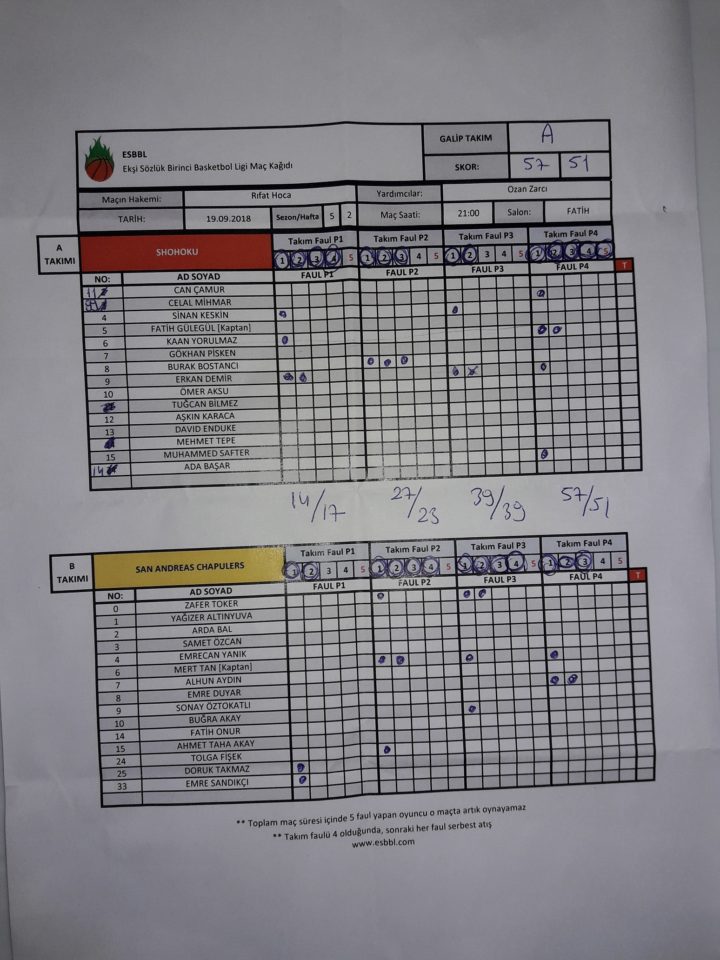 ESBBL
Ekşi Sözlük Birinci Basketbol Ligi Maç Kağıdı
GALİP TAKIM A
SKOR: 57 51
Maçın Hakemi: Rıfat Hoca Yardımcılar: Ozan Zarcı
TARİH: 19.09.2018 Sezon/Hafta 5 2 Maç Saati: 21:00 Salon: FATİH
A TAKIMI SHOHOKU Takım Faul P1 Takım Faul P2 Takım Faul P3 Takım Faul P4
1 2 3 4 5 1 2 3 4 5 1 2 3 4 5 1 2 3 4 5
NO: AD SOYAD FAUL P1 FAUL P2 FAUL P3 FAUL P4 T
11 CAN ÇAMUR
CELAL MİHMAR
4 SİNAN KESKİN
5 FATİH GÜLEGÜL [Kaptan]
6 KAAN YORULMAZ
7 GÖKHAN PİSKEN
8 BURAK BOSTANCI
9 ERKAN DEMİR
10 ÖMER AKSU
TUĞCAN BİLMEZ
12 AŞKIN KARACA
13 DAVID ENDUKE
MEHMET TEPE
15 MUHAMMED SAFTER
14 ADA BAŞAR
14/17 27/23 39/39 57/51
B TAKIMI SAN ANDREAS CHAPULERS Takım Faul P1 Takım Faul P2 Takım Faul P3 Takım Faul P4
1 2 3 4 5 1 2 3 4 5 1 2 3 4 5 1 2 3 4 5
NO: AD SOYAD FAUL P1 FAUL P2 FAUL P3 FAUL P4 T
0 ZAFER TOKER
1 YAĞIZER ALTINYUVA
2 ARDA BAL
3 SAMET ÖZCAN
4 EMRECAN YANIK
6 MERT TAN [Kaptan]
7 ALHUN AYDIN
8 EMRE DUYAR
9 SONAY ÖZTOKATLI
10 BUĞRA AKAY
14 FATİH ONUR
15 AHMET TAHA AKAY
24 TOLGA FİŞEK
25 DORUK TAKMAZ
33 EMRE SANDIKÇI
** Toplam maç süresi içinde 5 faul yapan oyuncu o maçta artık oynayamaz
** Takım faulü 4 olduğunda, sonraki her faul serbest atış
www.esbbl.com